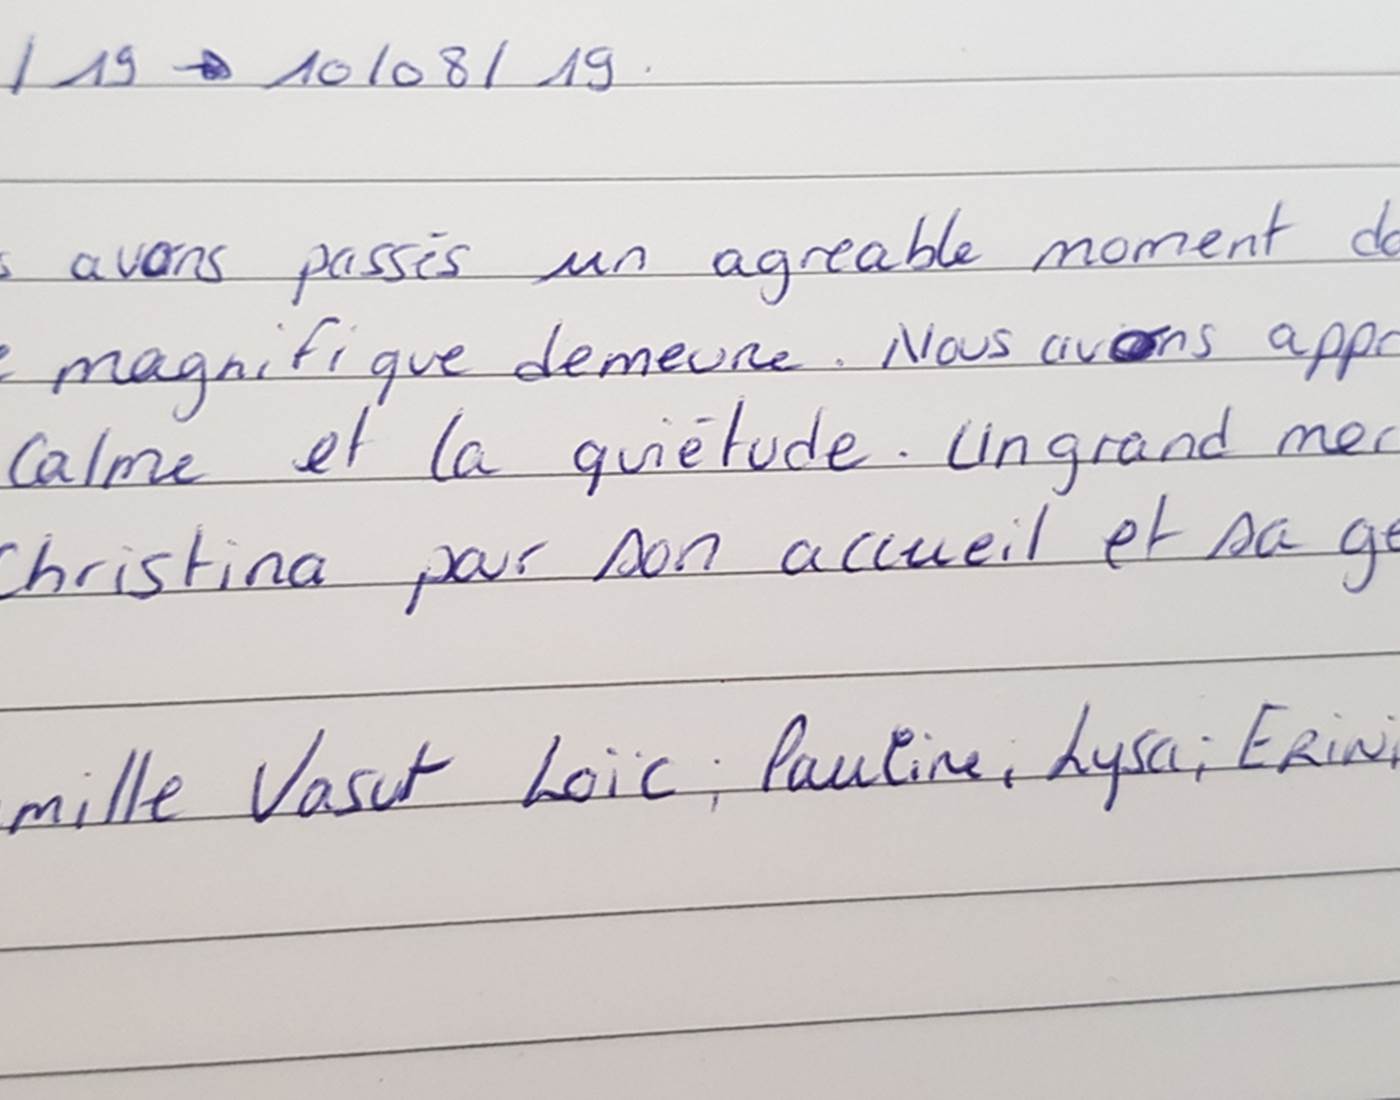 / 19 → 10/08/ 19.
s avons passés un agreable moment da
e magnifique demeure. Nous avons appr
Calme et la quiétude. Un grand mer
Christina pour son accueil et sa ge
mille Vasut Loïc; Pauline; Lysa; ERiNi